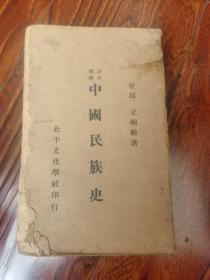 任邱 王桐齡著
訂正
增補
中國民族史
北平文化學社印行